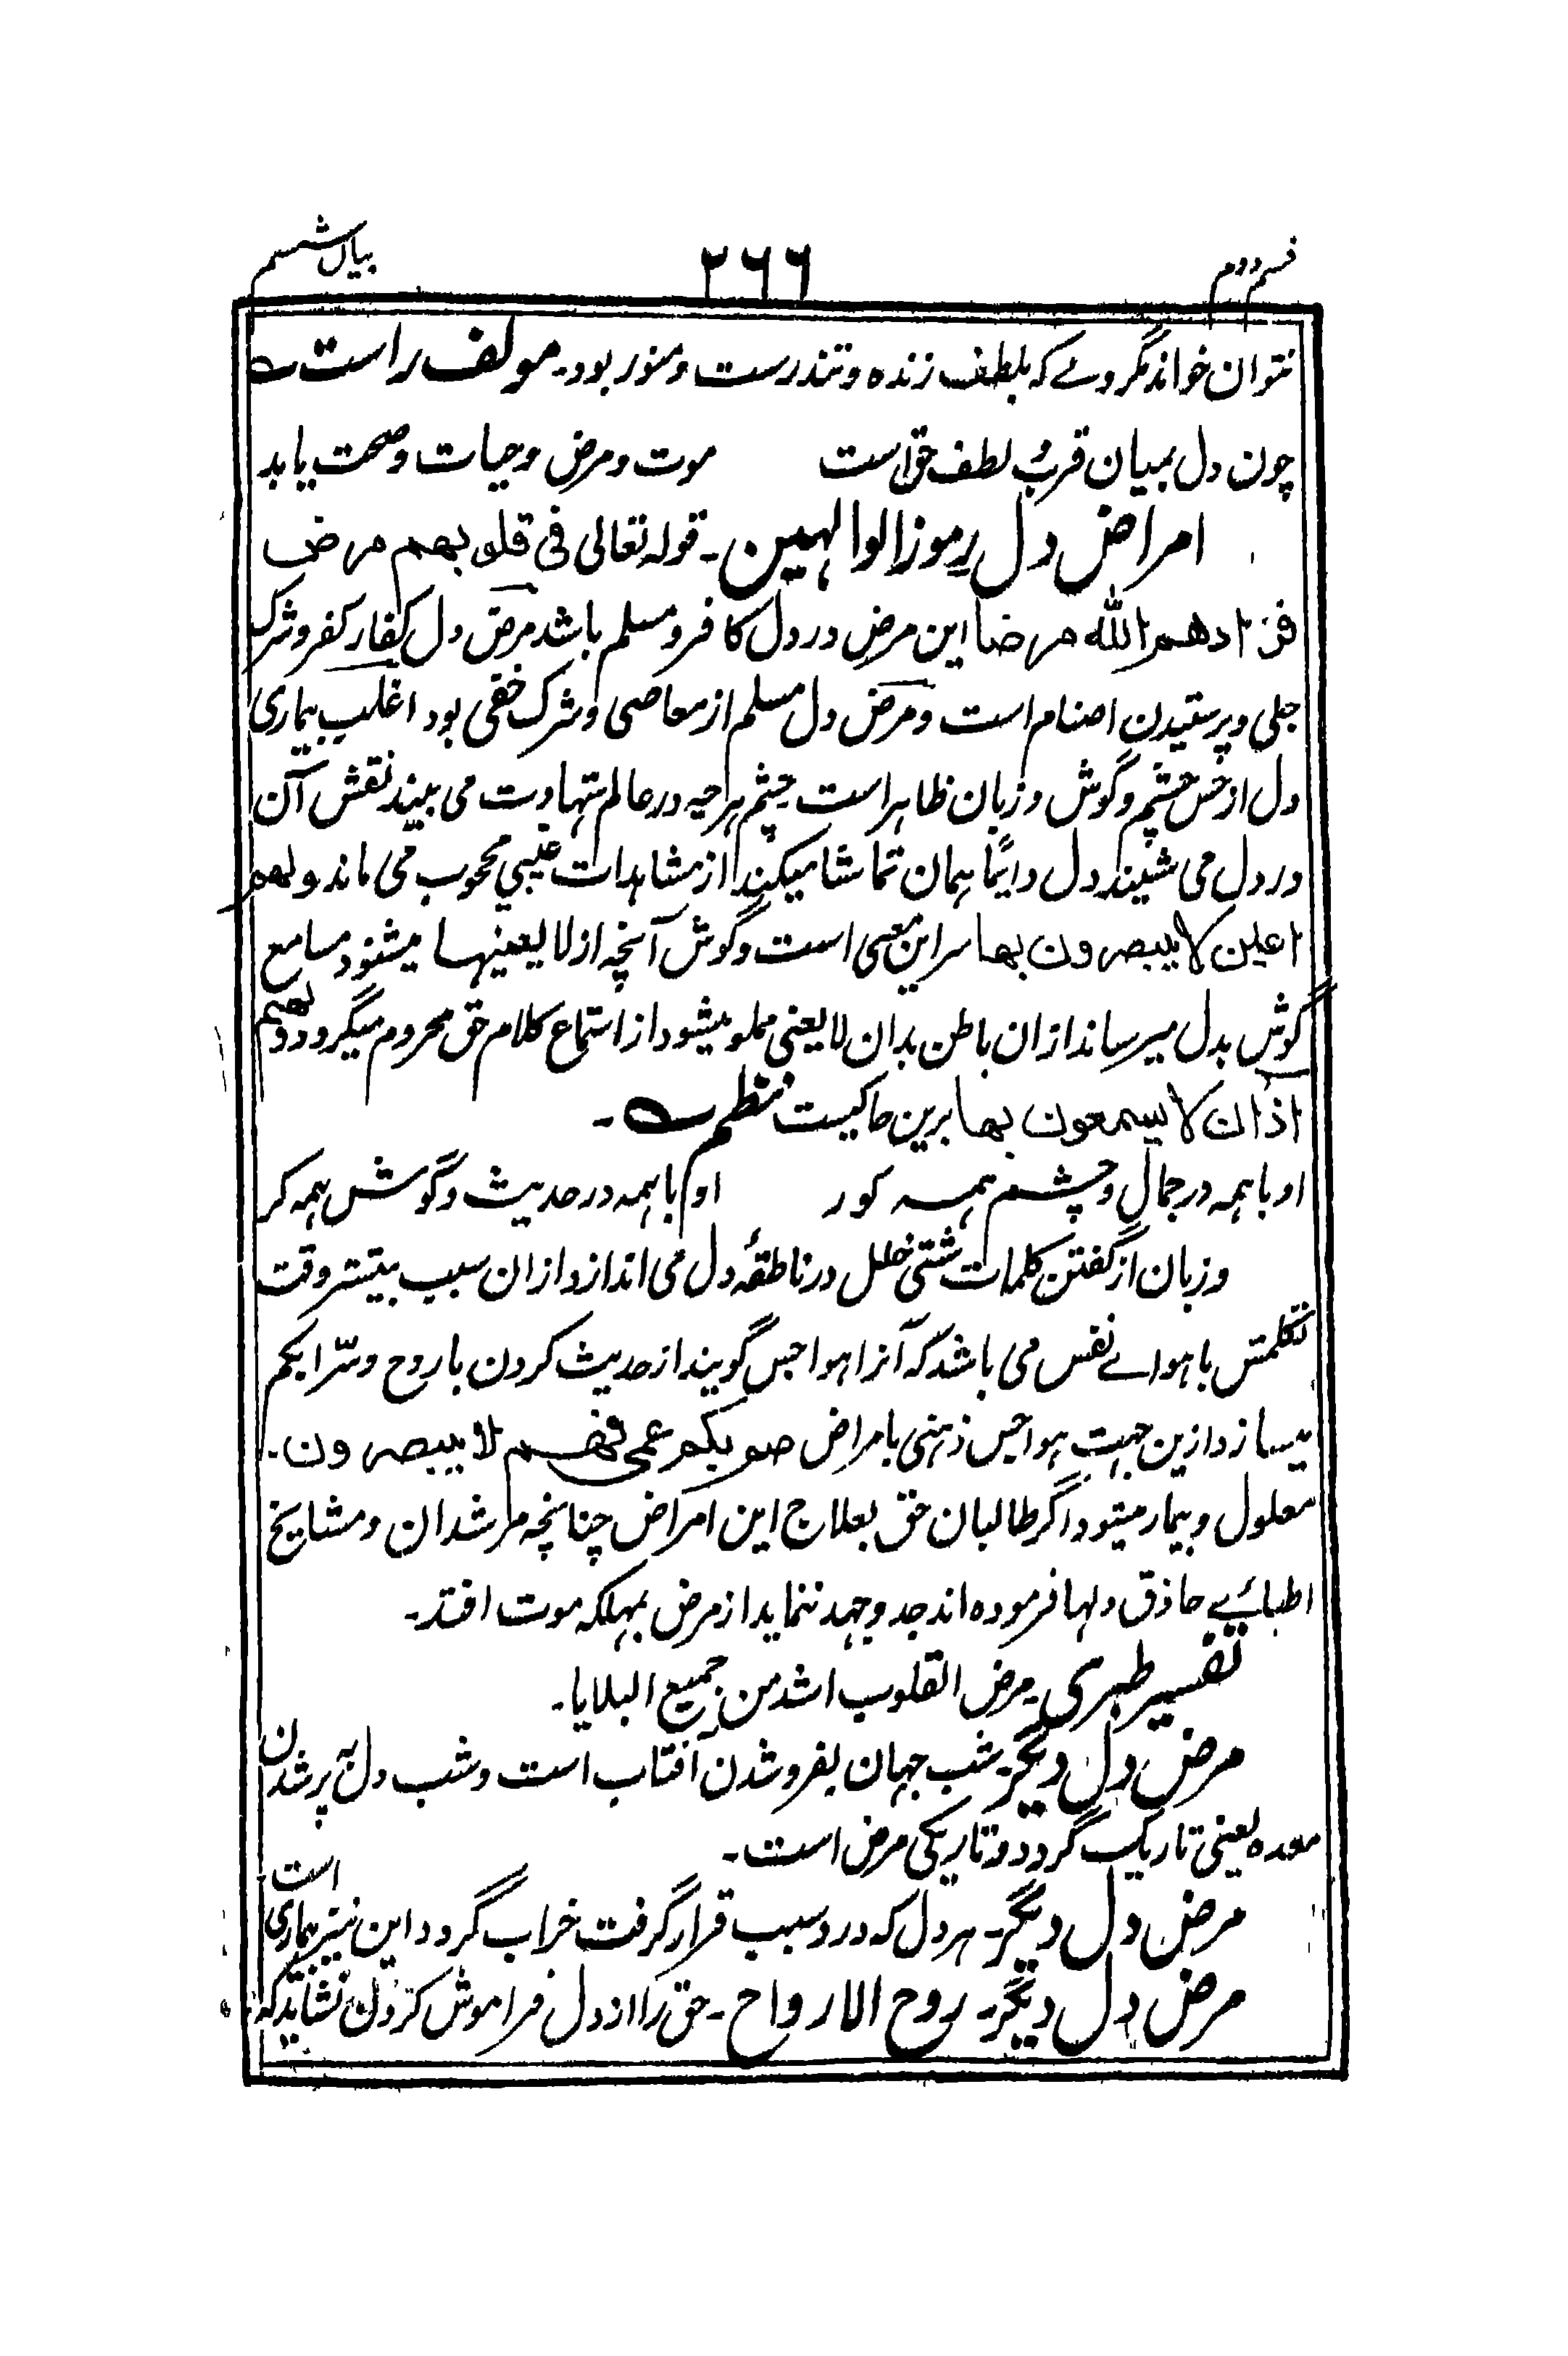 قسم دوم
۲۶۶
بیان ششم
نتوان خواند مگر دلے که بلطف زنده و تندرست و منور بود۔ مولف راست
چون دل بمیان قرب لطف حق است موت و مرض و حیات و صحت یابد
امراض دل رموز الوالهین۔ قوله تعالی فی قلوبهم مرض
فزادهم الله مرضا این مرض در دل کافر و مسلم باشد مرض دل کفار کفر و شرک
جلی و پرستیدن اصنام است و مرض دل مسلم از معاصی و شرک خفی بود اغلب بیماری
دل از حس چشم و گوش و زبان ظاهر است چشم هرچه در عالم شهادت می بیند نقش آن
در دل می نشیند دل دایمًا همان تماشا میکند از مشاهدات غیبی محجوب می ماند ولهم
اعین لا یبصرون بها سر این معنی است و گوش آنچه از لا یعینها میشنود مسامع
گوش بدل میرساند ازان باطن بدان لا یعنی مملو میشود از استماع کلام حق محروم میگردد ولهم
اذان لا یسمعون بها برین حاکیست نظم۔
او با همه در جمال و چشم همه کور او با همه در حدیث و گوش همه کر
و زبان از گفتن کلمات شتی خلل در ناطقهٔ دل می اندازد ازان سبب بیشتر وقت
تکلمش با هواے نفس می باشد که آنرا هواجس گویند از حدیث کردن با روح و سّر ابکم
میسازد ازین جهت هواجس ذهنی بامراض صم بکم عمی فهم لا یبصرون۔
معلول و بیمار میشود اگر طالبان حق بعلاج این امراض چنانچه مرشدان و مشایخ
اطبائے حاذق دلها فرموده اند جد و جهد ننماید از مرض بمهلکه موت افتد۔
تفسیر طبری۔ مرض القلوب اشد من جمیع البلایا۔
مرض دل دیگر۔ شب جهان بفروشدن آفتاب است و شب دل به پر شدن
معده یعنی تاریک گردد و تاریکی مرض است۔
مرض دل دیگر۔ هر دل که درو سبب قرار گرفت خراب گردد این نیز بیماری است
مرض دل دیگر۔ روح الارواح۔ حق را از دل فراموش کردن نشاید که